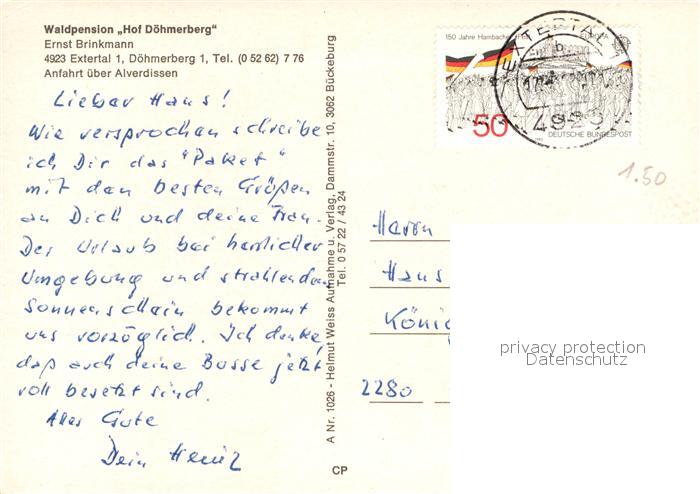 Waldpension „Hof Döhmerberg"
Ernst Brinkmann
4923 Extertal 1, Döhmerberg 1, Tel. (0 52 62) 7 76
Anfahrt über Alverdissen
Lieber Hans!
Wie versprochen schreibe
ich Dir das "Paket"
mit den besten Grüßen
an Dich und deine Frau.
Der Urlaub bei herrlicher
Umgebung und strahlendem
Sonnenschein bekommt
uns vorzüglich. Ich denke,
daß auch deine Busse jetzt
voll besetzt sind.
Alles Gute
Dein Heinz
A Nr. 1026 - Helmut Weiss Aufnahme u. Verlag, Dammstr. 10, 3062 Bückeburg
Tel. 0 57 22 / 43 24
CP
150 Jahre Hambacher
EUROPA
50
DEUTSCHE BUNDESPOST
EXTERTAL
b
4923
1.50
Herrn
Hans
König
2280
privacy protection
Datenschutz